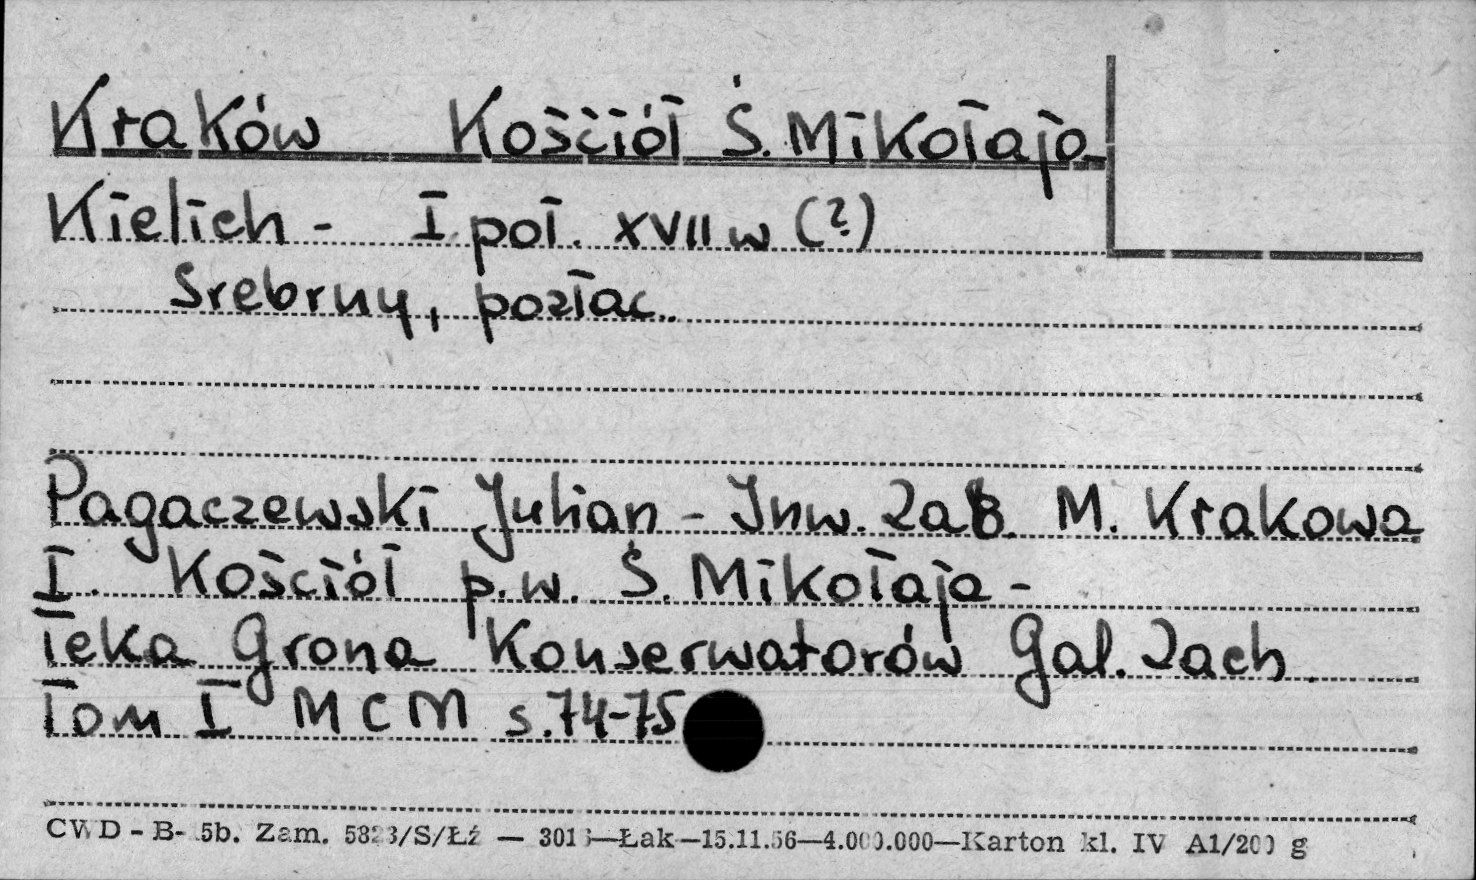 Kraków Kościół Ś. Mikołaja
Kielich - I poł. XVII w (?)
Srebrny, pozłac.
Pagaczewski Julian - Inw. Zab. M. Krakowa
I. Kościół p.w. Ś. Mikołaja -
Teka Grona Konserwatorów Gal. Zach.
Tom I MCM s. 74-75
CWD - B- 5b. Zam. 5823/S/Łź — 3016—Łak—15.11.56—4.000.000—Karton kl. IV A1/200 g